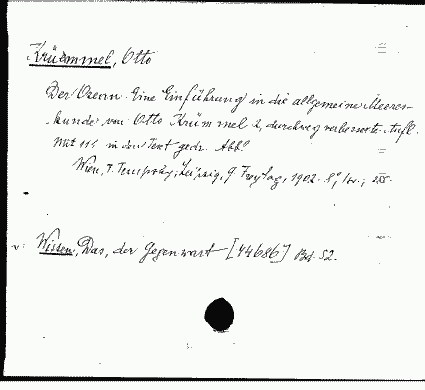 Krümmel, Otto
Der Ozean. Eine Einführung in die allgemeine Meeres-
kunde von Otto Krümmel 2, durchweg verbesserte Aufl.
Mit 111 in den Text gedr. Abb.
Wien, F. Tempsky; Leipzig, G. Freytag, 1902. 8°,
Wissen, Das, der Gegenwart [44686] Bd. 52.